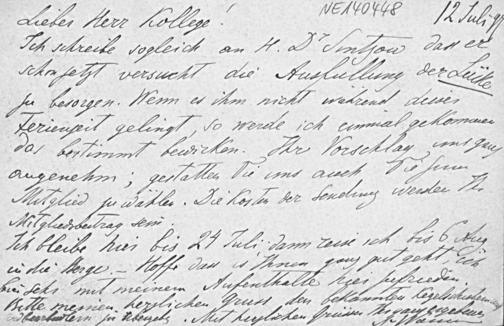 NE140448
12 Juli
Liebes Herr Kollege!
Ich schreibe sogleich an H. Dr Sintzow dass er
schon jetzt versucht die Ausfüllung der Lücke
zu besorgen. Wenn es ihm nicht während dieser
Ferienzeit gelingt so werde ich einmal gekommen
das bestimmt bewirken. Ihr Vorschlag uns ganz
angenehm; gestatten Sie uns auch Sie zum
Mitglied zu wählen. Die Kosten der Sendung werden Ihr
Mitgliedsbeitrag sein.
Ich bleibe hier bis 24 Juli dann reise ich bis 6 Aug
in die Berge. – Hoffe dass es Ihnen ganz gut geht. Ich
bin sehr mit meinem Aufenthalte hier zufrieden.
Bitte meinen herzlichen Gruss den bekannten
zu Mit herzlichen Grüssen Ihr ganz ergebener